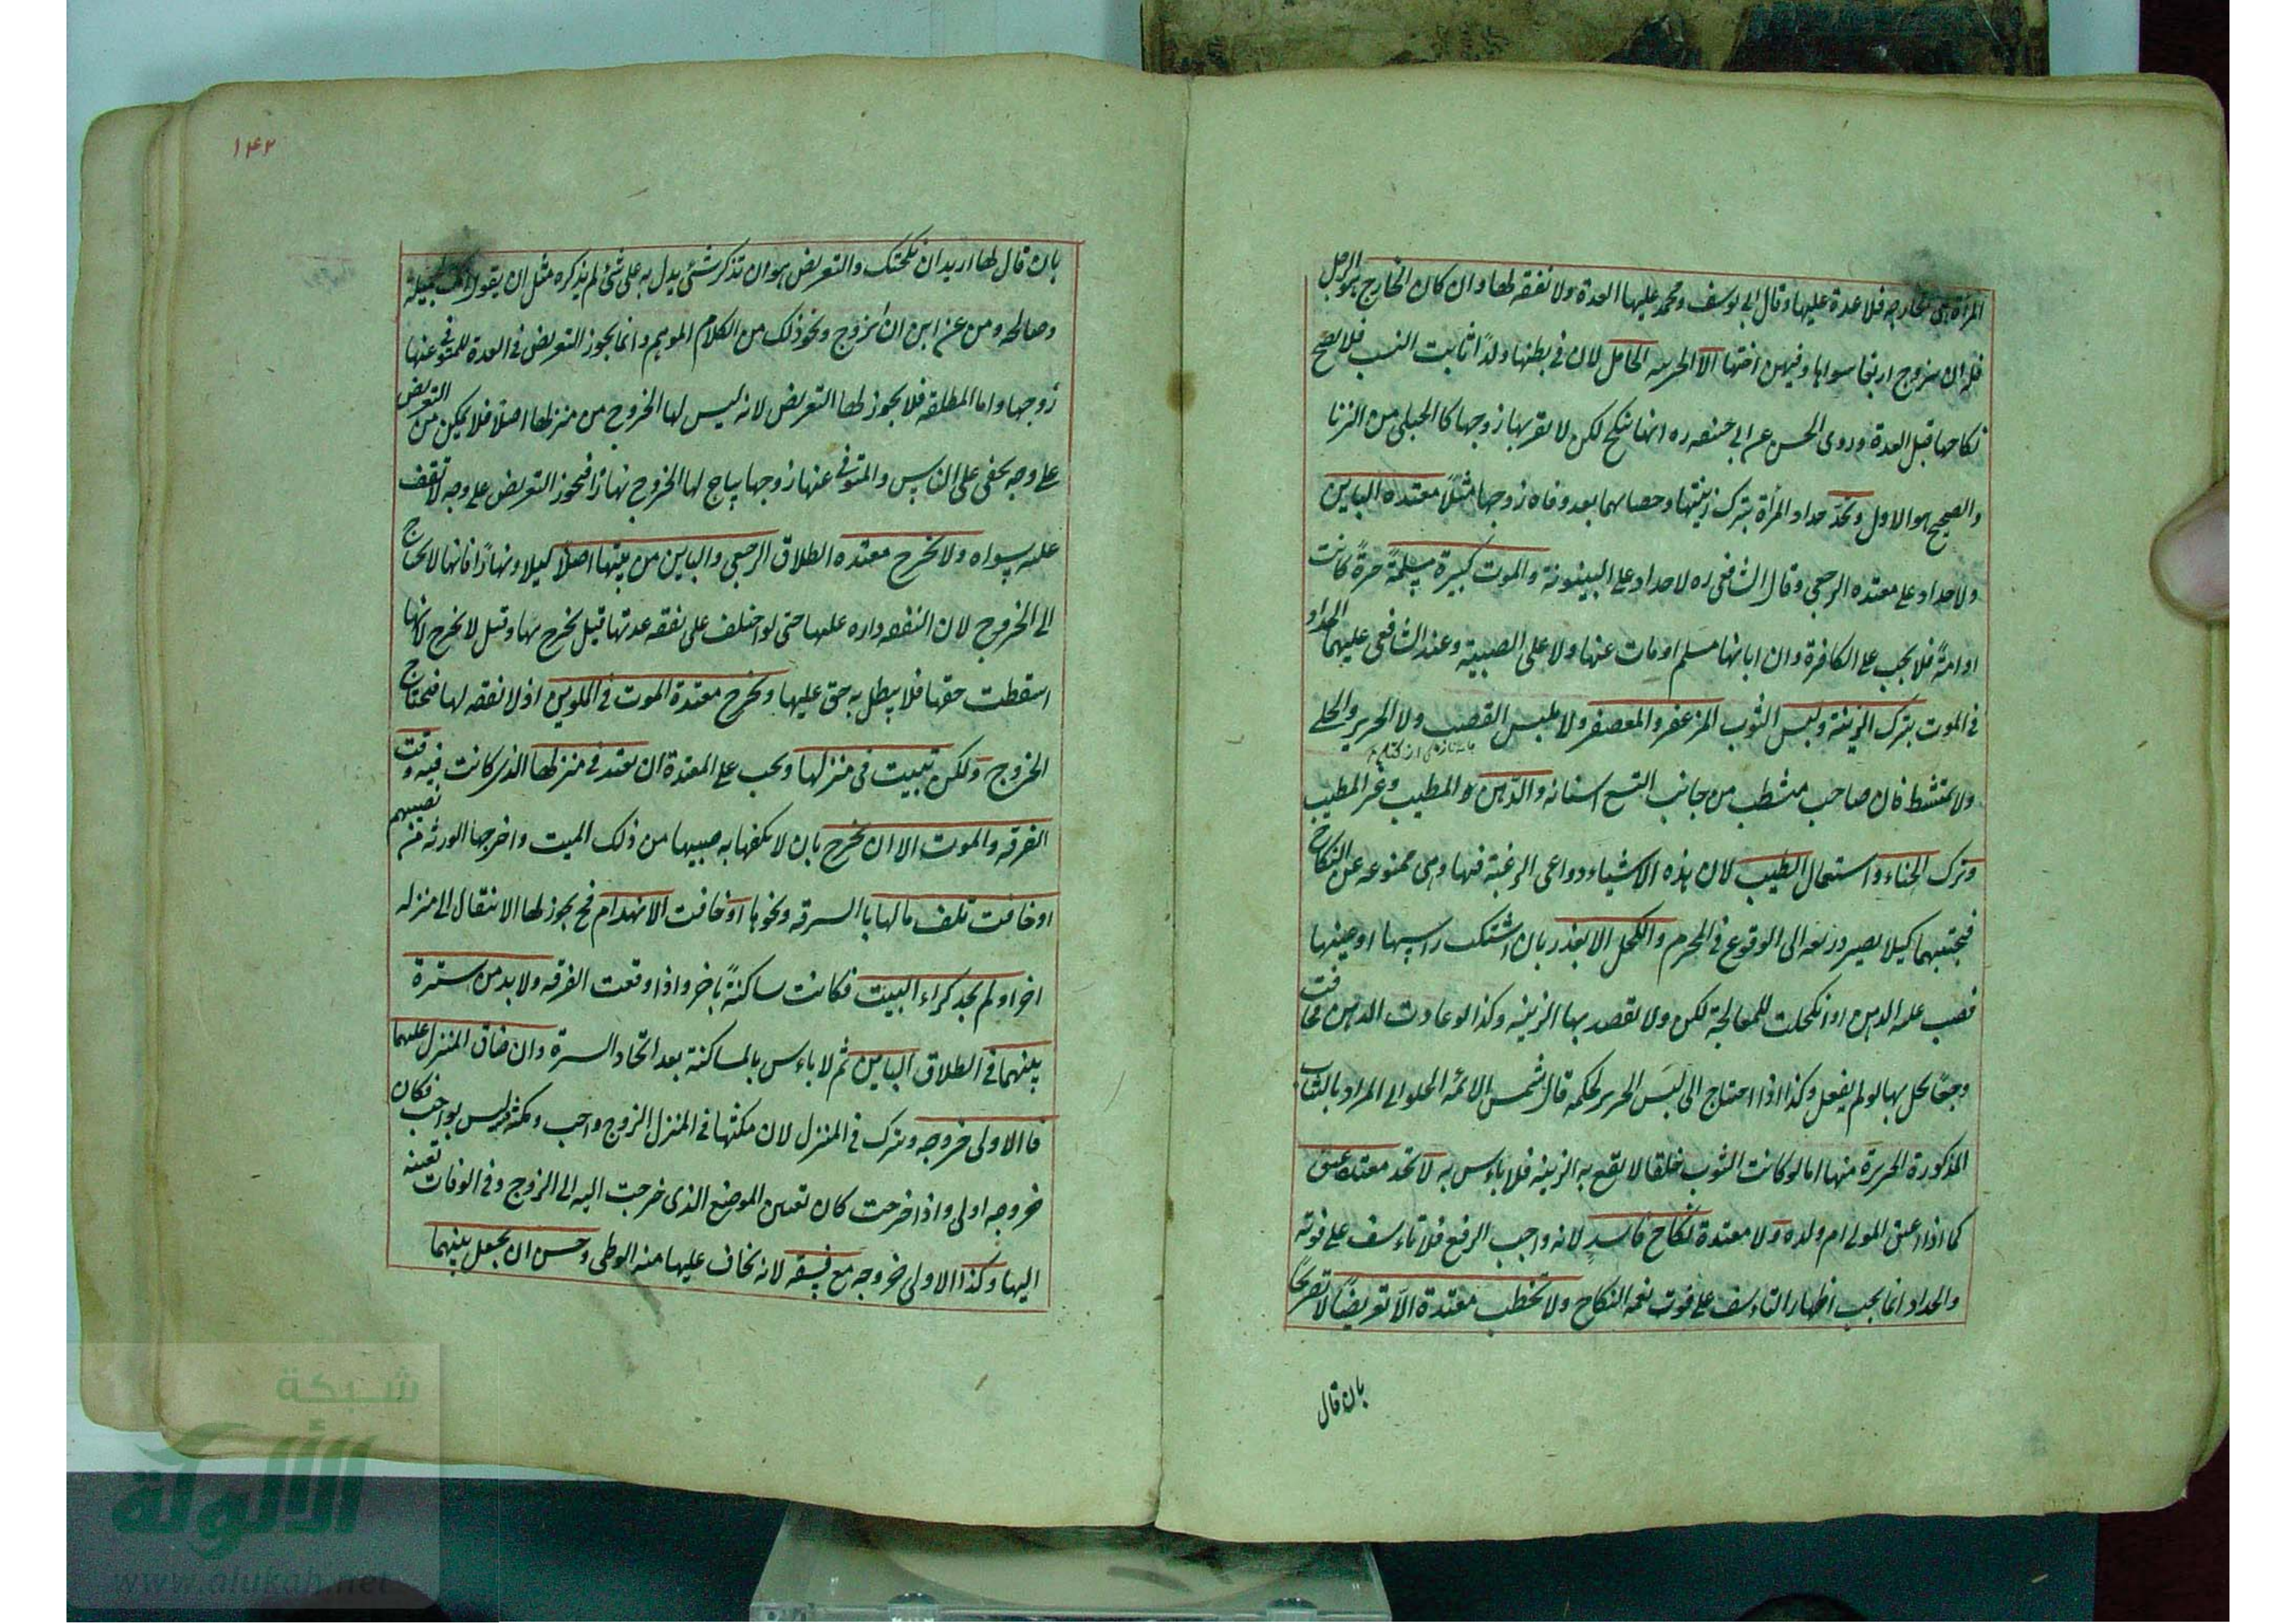 المرأة هى خارجه فلا عدة عليها وقال ابى يوسف ومحمد عليها العدة ولا نفقه لها وان كان الخارج هو الرجل
فله ان يتزوج اربعا سواها وفيهن اختها الا الحربيه الحامل لان فى بطنها ولدًا ثابت النسب فلا يصح
نكاحها قبل العدة وروى الحسن عن ابى حنيفه ره انها تنكح لكن لا يقربها زوجها كا الحبلى من الزنا
والصحيح هو الاول وتحد حداد المرأة بترك زينتها وحصابهما بعد وفاه زوجها مثلاً معتده الباين
ولا حداد على معتده الرجعى وقال الشافعى ره لا حداد على البينونة والموت كبيرة مسلمةً حرةً كانت
او امةً فلا يجب على الكافرة وان ابانها مسلم او مات عنها ولا على الصبية وعند الشافعى عليهما الحداد
فى الموت بترك الزينة ولبس الثوب المزعفر والمعصفر ولا يلبس القصب ولا الحرير والحلى
ولا يمتشط فان صاحب مشطب من جانب التسع اسنانه والدهن لا المطيب وغير المطيب
وترك الحناء واستعمال الطيب لان هذه الاشياء دواعى الرغبة فيها وهى ممنوعه عن النكاح
فيجتنبهما كيلا يصير ذريعه الى الوقوع فى المحرم والكحل الا بعذر بان اشتكت راسها او عينها
فصب عليه الدهن او اكتحلت للمعالجة لكن ولا تقصد بها الزينه وكذا لو عادت الدهن فخافت
وجعًا يحل بها لو لم يفعل وكذا اذا احتاج الى لبَس الحرير لحكمه قال شمس الائمه الحلوانى المراد بالثياب
المذكورة الجديدة منها اما لو كانت الثوب خلقا لا يقع به الزينه فلا باءس به لا تحد معتده عتق
كما اذا اعتق المولى ام ولده ولا معتدة نكاح فاسد لانه واجب الرفع فلا تاءسف على فوته
والحداد انما يجب اظهار التاءسف على فوت نعمه النكاح ولا تخطب معتدة الا تعريضًا لا تصريحًا
بان قال
١۴٢
بان قال لها اريد ان نكحتك والتعريض هو ان تذكر شئ يدل به على شئ لم يذكره مثل ان يقول انك لجميلة
وصالحه ومن غرضى ان اتزوج ونحو ذلك من الكلام الموهم وانما يجوز التعريض فى العدة للمتوفى عنها
زوجها واما المطلقه فلا يجوز لها التعريض لانه ليس لها الخروج من منزلها اصلاً فلا يمكن من التعريض
على وجه يخفى على الناس والمتوفى عنها زوجها يباح لها الخروج نهارًا فيجوز التعريض على وجه لا تقف
عليه سواه ولا تخرج معتده الطلاق الرجعى والباين من بيتها اصلًا ليلا ونهارًا فانها لا تحتاج
الى الخروج لان النفقه داره عليها حتى لو اختلف على نفقه عدتها قيل تخرج نهارا وقيل لا تخرج لانها
اسقطت حقها فلا يبطل به حق عليها وتخرج معتدة الموت فى الملوين اذ لا نفقه لها فتحتاج
الخروج ولكن تبيت فى منزلها ويجب على المعتدة ان تعتد فى منزلها الذى كانت فيه وقت
الفرقه والموت الا ان تخرج بان لا يكفها به نصيبها من ذلك الميت واخرجها الورثه من نصيبهم
او خافت تلف مالها باالسرقه ونحوها او خافت الانهدام فح يجوز لها الانتقال الى منزله
اخر او لم يجد كراء البيت فكانت ساكنةً باخر واذا وقعت الفرقه ولا بد من سترة
بينهما فى الطلاق الباين ثم لا باءس بالمساكنة بعد اتحاد السترة وان ضاق المنزل عليهما
فا الاولى خروجه ويترك فى المنزل لان مكثها فى المنزل الزوج واجب ومكثه ليس بواجب فكان
خروجه اولى واذا خرجت كان تعيين الموضع الذى خرجت اليه الى الزوج وفى الوفات تعينه
اليها وكذا الاولى خروجه مع فسقه لانه يخاف عليها منه الوطى وحسن ان يجعل بينهما
شبكة
الألوكة
www.alukah.net